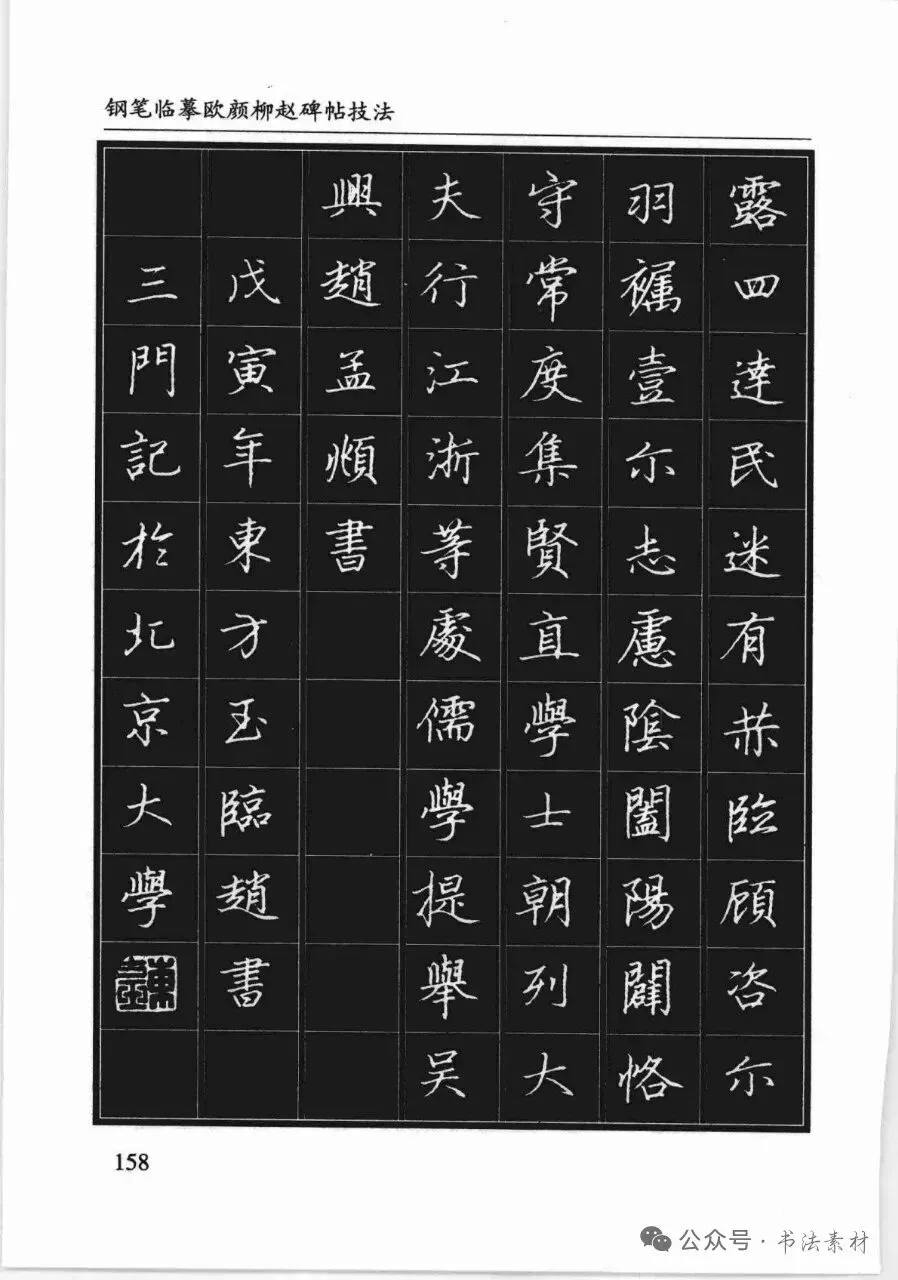 钢笔临摹欧颜柳赵碑帖技法
露四達民迷有赫臨顧咨尒
羽壹尒志慮陰闔陽闢恪
守常度集賢直學士朝列大
夫行江浙等處儒學提舉吴
興趙孟頫書
戊寅年東方玉臨趙書
三門記於北京大學
158
公众号·书法素材